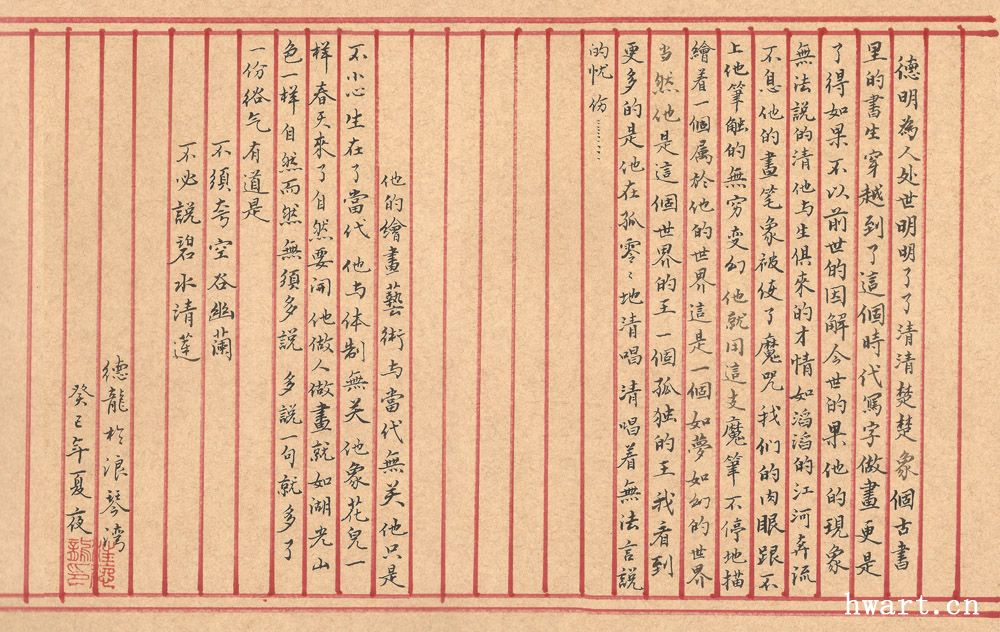 德明為人处世明明了了清清楚楚象個古書
里的書生穿越到了這個時代寫字做畫更是
了得如果不以前世的因解今世的果他的現象
無法說的清他与生俱來的才情如滔滔的江河奔流
不息他的畫笔象被使了魔咒我们的肉眼跟不
上他筆触的無穷变幻他就用這支魔筆不停地描
繪着一個属於他的世界這是一個如夢如幻的世界
当然他是這個世界的王一個孤独的王我看到
更多的是他在孤零々地清唱清唱着無法言說
的忧伤……
他的繪畫藝術与當代無关他只是
不小心生在了當代他与体制無关他象花兒一
样春天來了自然要開他做人做畫就如湖光山
色一样自然而然無須多說多說一句就多了
一份俗气有道是
不須夸空谷幽蘭
不必說碧水清莲
德龍於浪琴湾
癸巳年夏夜
hwart.cn